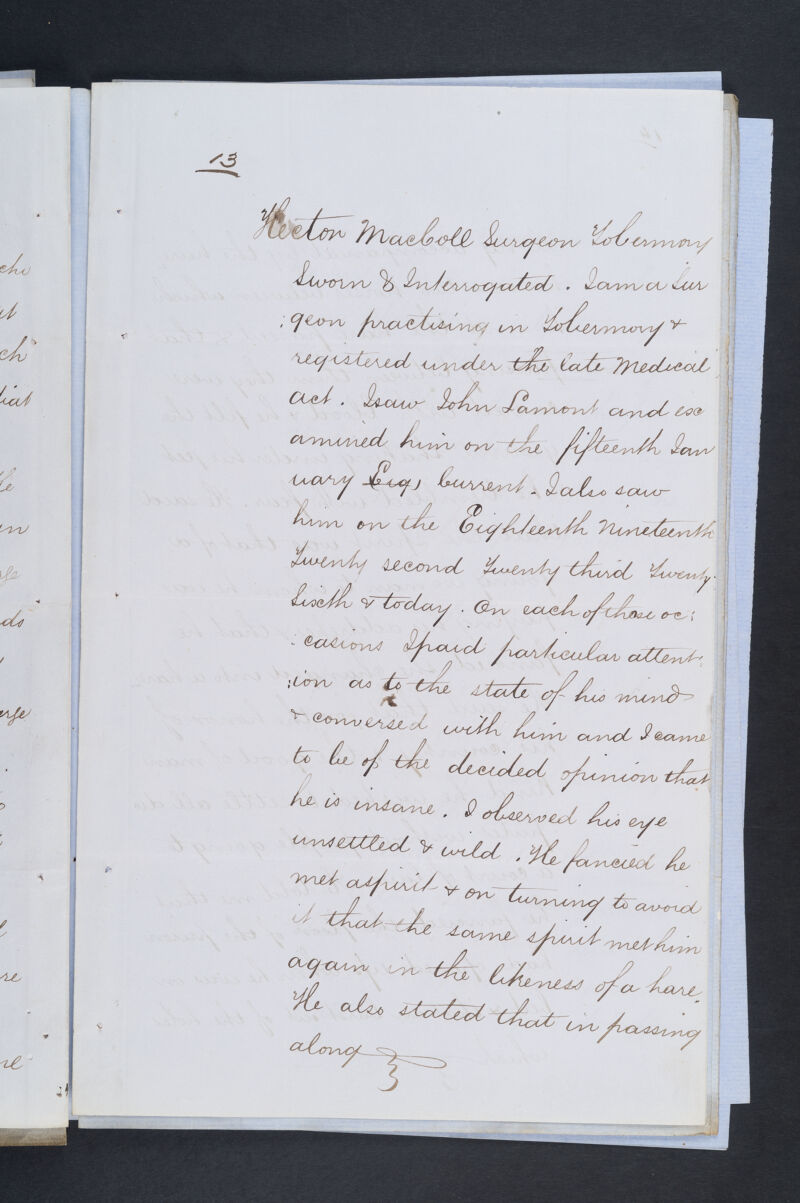 13
Hector MacColl Surgeon Tobermory
Sworn & Interrogated. I am a Sur
:geon practising in Tobermory &
registered under the late Medical
act. I saw John Lamont and ex
amined him on the fifteenth Jan
uary Current. I also saw
him on the Eighteenth Nineteenth
Twenty second Twenty third Twenty
Sixth & today. On each of those oc:
casions I paid particular attent:
:ion as to the state of his mind
& conversed with him and I came
to be of the decided opinion that
he is insane. I observed his eye
unsettled & wild. He fancied he
met a spirit & on turning to avoid
it that the same spirit met him
again in the likeness of a hare.
He also stated that in passing
along